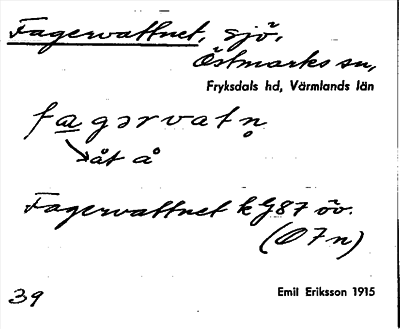 Fagervattnet, sjö,
Östmarks sn,
Fryksdals hd, Värmlands län
fagərvatn̥
åt å
Fagervattnet k G87 öv.
(Ö 7 n)
39
Emil Eriksson 1915